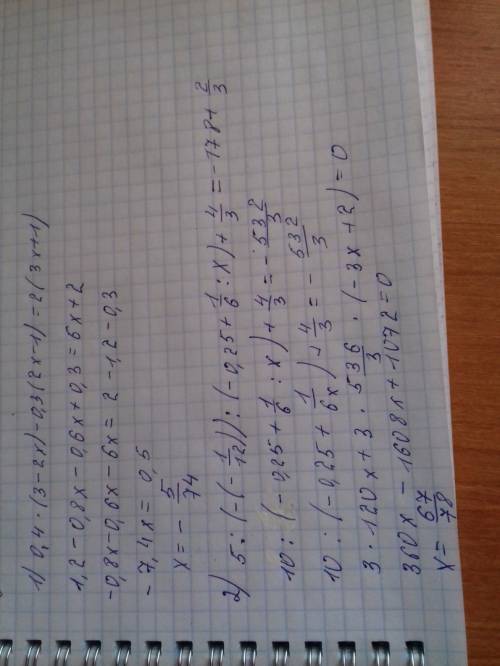 1) 0,4·(3-2x)-0,3(2x-1)=2(3x+1)
1,2-0,8x-0,6x+0,3=6x+2
-0,8x-0,6x-6x=2-1,2-0,3
-7,4x=0,5
x=-5/74
2) 5:(-(-1/12)):(-0,25+1/6:x)+4/3=-178+2/3
10:(-0,25+1/6:x)+4/3=-532/3
10:(-0,25+1/6x)+4/3=-532/3
3·120x+3·536/3·(-3x+2)=0
360x-1608x+1072=0
x=67/78